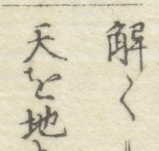 解く
天を地